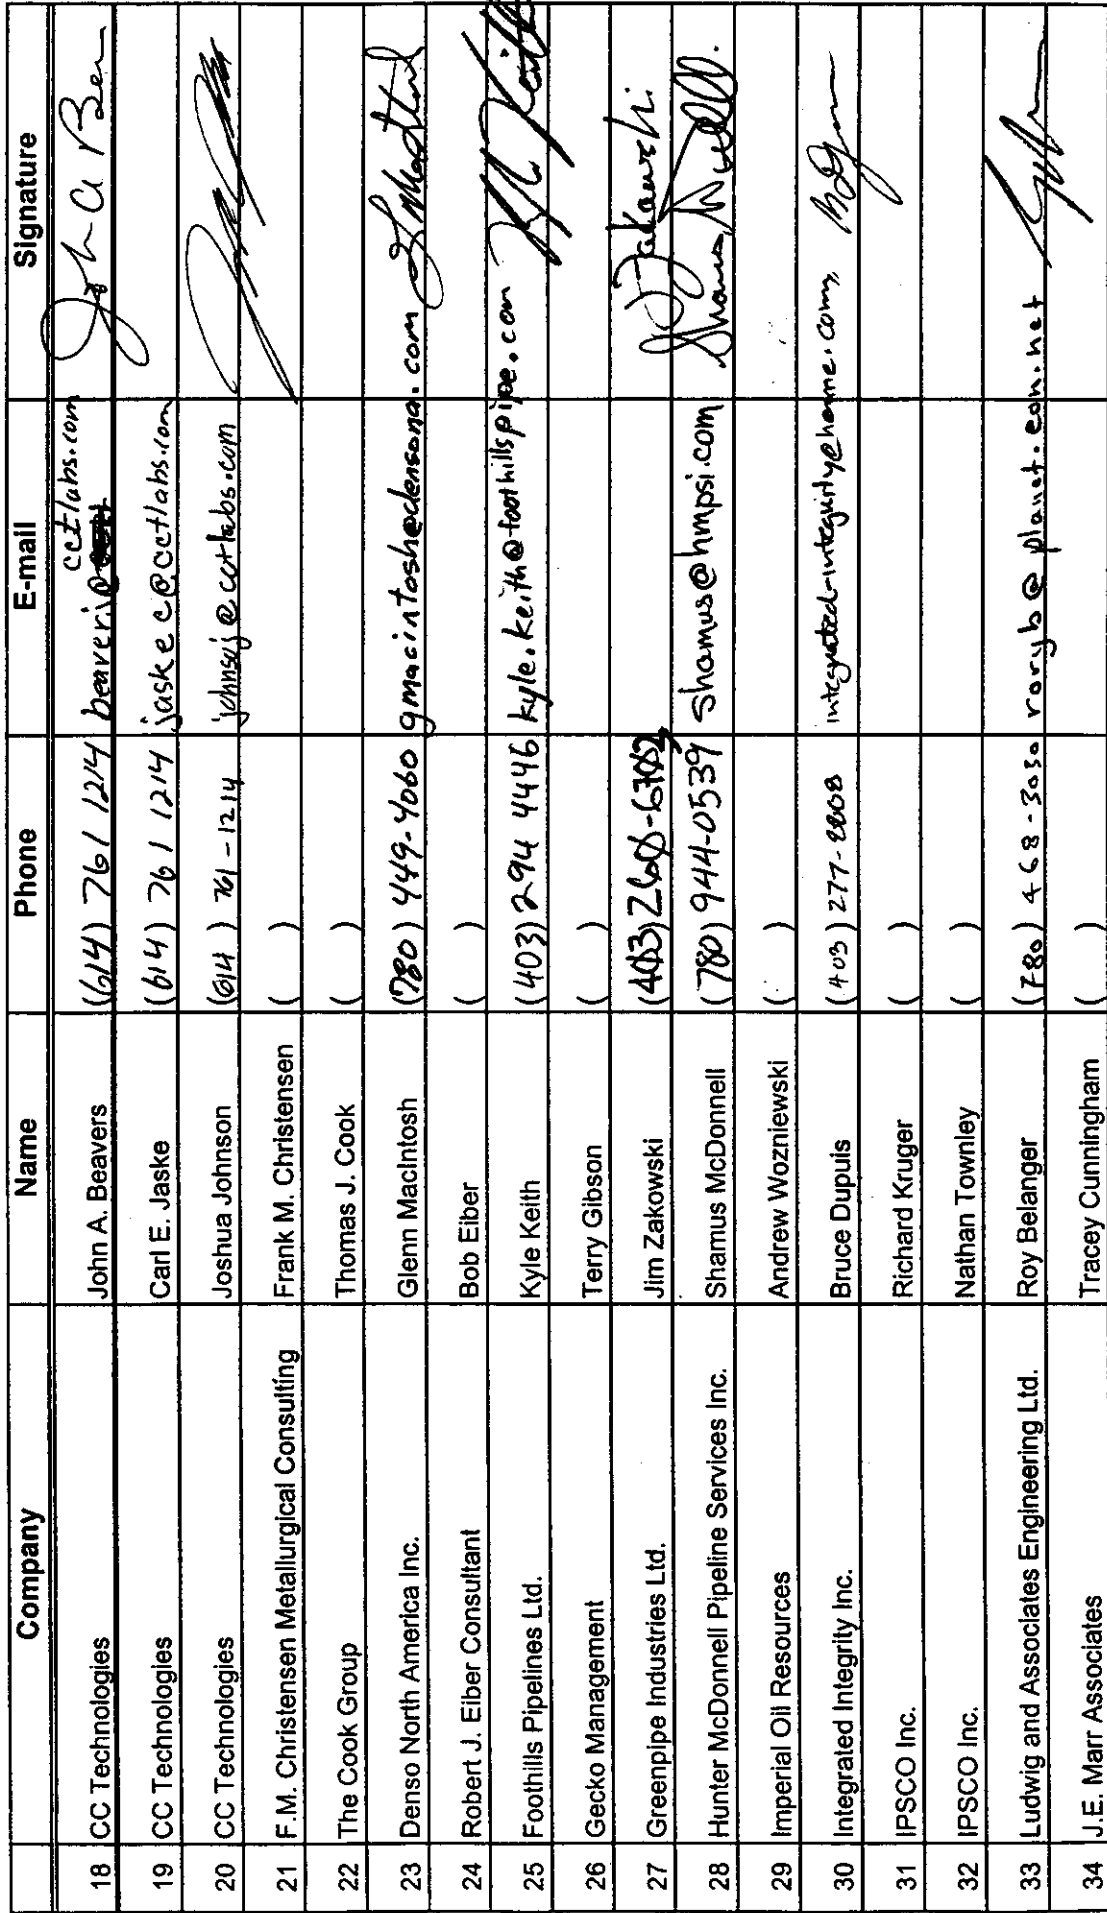 Company Name Phone E-mail Signature
18 CC Technologies John A. Beavers (614) 761 1214 beaverj@ cctlabs.com
19 CC Technologies Carl E. Jaske (614) 761 1214 jaskec@cctlabs.com
20 CC Technologies Joshua Johnson (614) 761-1214 johnsoj@cctlabs.com
21 F.M. Christensen Metallurgical Consulting Frank M. Christensen ( )
22 The Cook Group Thomas J. Cook ( )
23 Denso North America Inc. Glenn MacIntosh (780) 449-4060 gmacintosh@densona.com
24 Robert J. Eiber Consultant Bob Eiber ( )
25 Foothills Pipelines Ltd. Kyle Keith (403) 294 4446 kyle.keith@foothillspipe.com
26 Gecko Management Terry Gibson ( )
27 Greenpipe Industries Ltd. Jim Zakowski (403) Zakowski
28 Hunter McDonnell Pipeline Services Inc. Shamus McDonnell (780) 944-0539 shamus@hmpsi.com
29 Imperial Oil Resources Andrew Wozniewski ( )
30 Integrated Integrity Inc. Bruce Dupuis (403) 277- integrated-integrity@home.com
31 IPSCO Inc. Richard Kruger ( )
32 IPSCO Inc. Nathan Townley ( )
33 Ludwig and Associates Engineering Ltd. Roy Belanger (780) 468-3030 roryb@planet.eon.net
34 J.E. Marr Associates Tracey Cunningham ( )